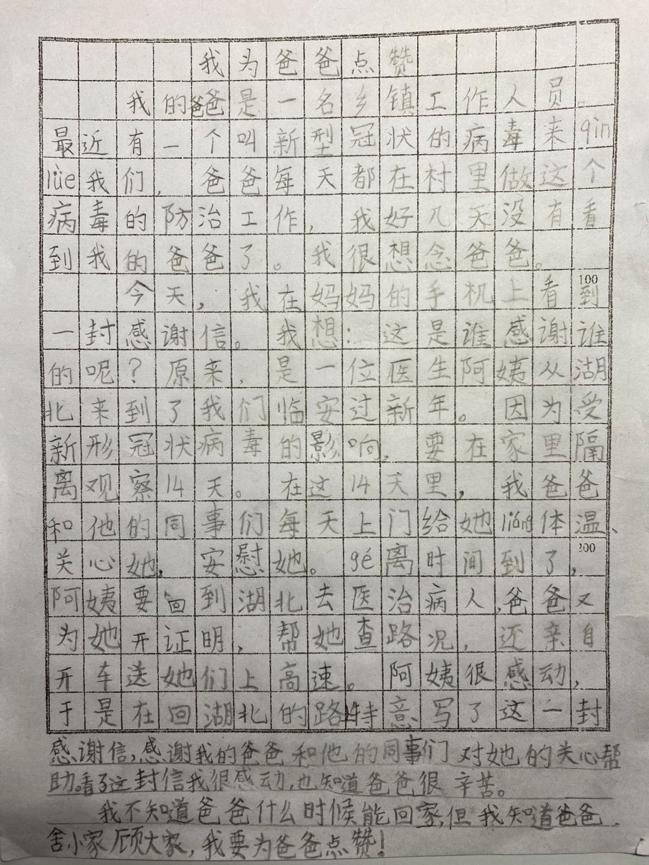 我为爸爸点赞
我的爸爸是一名乡镇工作人员。
最近有一个叫新型冠状的病毒来qīn
lüè我们，爸爸每天都在村里做这个
病毒的防治工作，我好几天没有看
到我的爸爸了。我很想念爸爸。
100
今天，我在妈妈的手机上看到
一封感谢信。我想：这是谁感谢谁
的呢？原来，是一位医生阿姨从湖
北来到了我们临安过新年。因为受
新形冠状病毒的影响，要在家里隔
离观察14天。在这14天里，我爸爸
和他的同事们每天上门给她liáng体温、
关心她，安慰她。gé离时间到了，
200
阿姨要回到湖北去医治病人，爸爸又
为她开证明，帮她查路况，还亲自
开车送她们上高速。阿姨很感动，
于是在回湖北的路上特意写了这一封
感谢信，感谢我的爸爸和他的同事们对她的关心帮
助。看了这封信我很感动，也知道爸爸很辛苦。
我不知道爸爸什么时候能回家，但我知道爸爸
舍小家顾大家，我要为爸爸点赞！